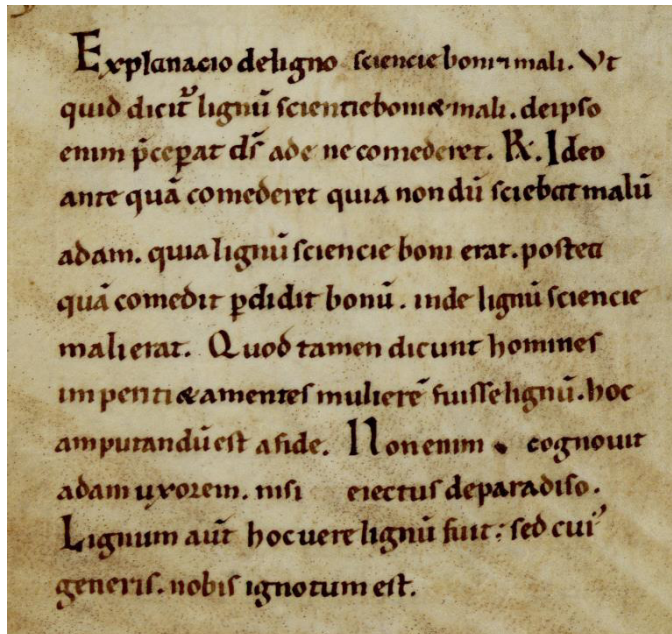 Explanacio deligno sciencie boni ⁊ mali. Vt
quid dicit͛ lignū scientie boni & mali. deipso
enim p̄ceꝑat ds̄ ade ne comederet. R̸. Ideo
ante quā comederet quia non dū sciebat malū
adam. quia lignū sciencie boni erat. postea
quā comedit ꝑdidit bonū. inde lignū sciencie
mali erat. Quod tamen dicunt homines
imperiti & amentes mulierē fuisse lignū. hoc
amputandū est a fide. Non enim cognouit
adam uxorem. nisi eiectus deparadiso.
Lignum aūt hoc uere lignū fuit; sed cui᾽
generis. nobis ignotum est.